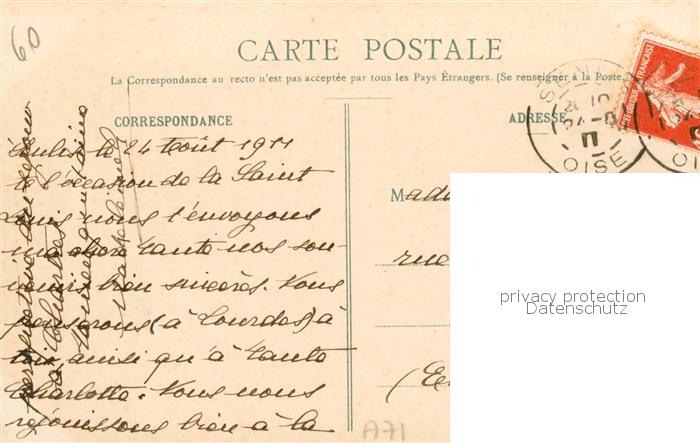 60
CARTE POSTALE
La Correspondance au recto n'est pas acceptée par tous les Pays Étrangers. (Se renseigner à la Poste
CORRESPONDANCE
ADRESSE
Senlis le 24 Août 1911
A l'occasion de la Saint
Louis nous t'envoyons
ma chère tante nos sou-
venirs bien sincères. Nous
penserons (à Lourdes) à
toi, ainsi qu'à tante
Charlotte. Nous nous
réjouissons bien à la
perspective de
Madame
rue
A71
RÉPUBLIQUE FRANÇAISE
OISE
privacy protection
Datenschutz